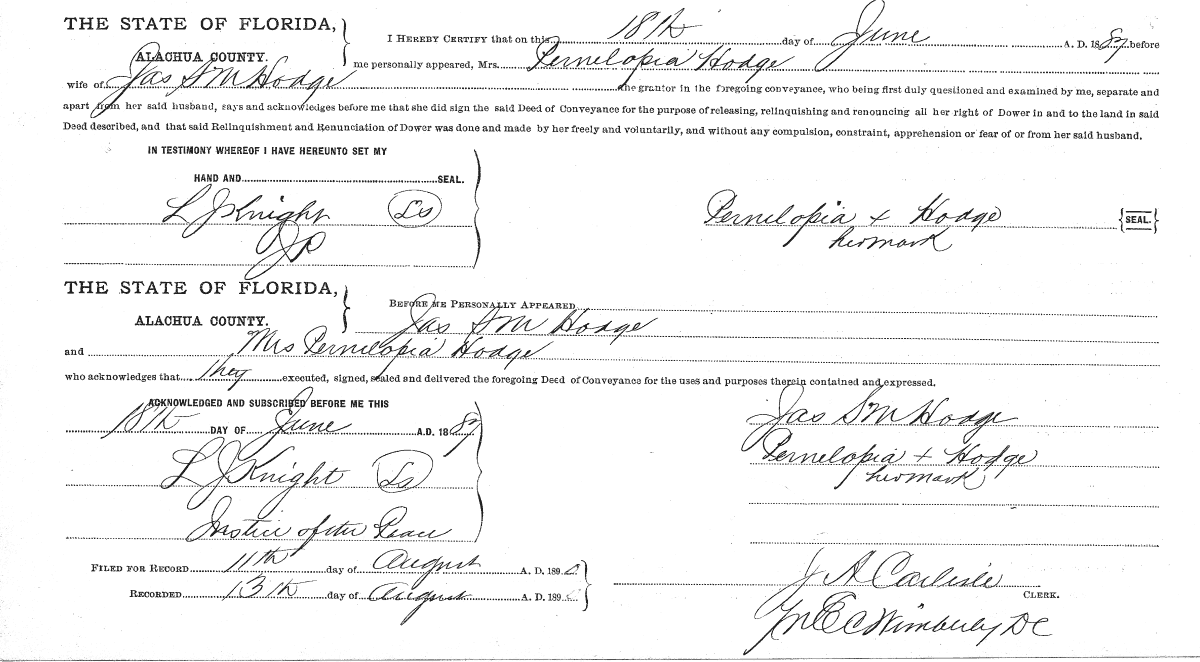 THE STATE OF FLORIDA,
ALACHUA COUNTY.
I HEREBY CERTIFY that on this 18th day of June A. D. 1887 before
me personally appeared, Mrs. Pernelopia Hodge
wife of Jas S M Hodge the grantor in the foregoing conveyance, who being first duly questioned and examined by me, separate and
apart from her said husband, says and acknowledges before me that she did sign the said Deed of Conveyance for the purpose of releasing, relinquishing and renouncing all her right of Dower in and to the land in said
Deed described, and that said Relinquishment and Renunciation of Dower was done and made by her freely and voluntarily, and without any compulsion, constraint, apprehension or fear of or from her said husband.
IN TESTIMONY WHEREOF I HAVE HEREUNTO SET MY
HAND AND SEAL.
L J Knight Ls
JP
Pernelopia + Hodge SEAL.
her mark
THE STATE OF FLORIDA,
ALACHUA COUNTY.
BEFORE ME PERSONALLY APPEARED
Jas S M Hodge
and Mrs Pernelopia Hodge
who acknowledges that they executed, signed, sealed and delivered the foregoing Deed of Conveyance for the uses and purposes therein contained and expressed.
ACKNOWLEDGED AND SUBSCRIBED BEFORE ME THIS
18th DAY OF June A.D. 1887
L J Knight Ls
Justice of the Peace
Jas S M Hodge
Pernelopia + Hodge
her mark
FILED FOR RECORD 11th day of August A. D. 189
RECORDED 13th day of August A. D. 189
J A Carlisle
CLERK.
Wimberly DC